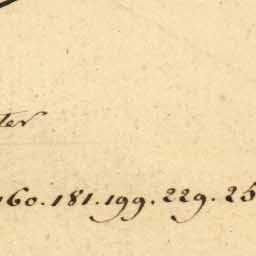 ter
160.181.199.229.25